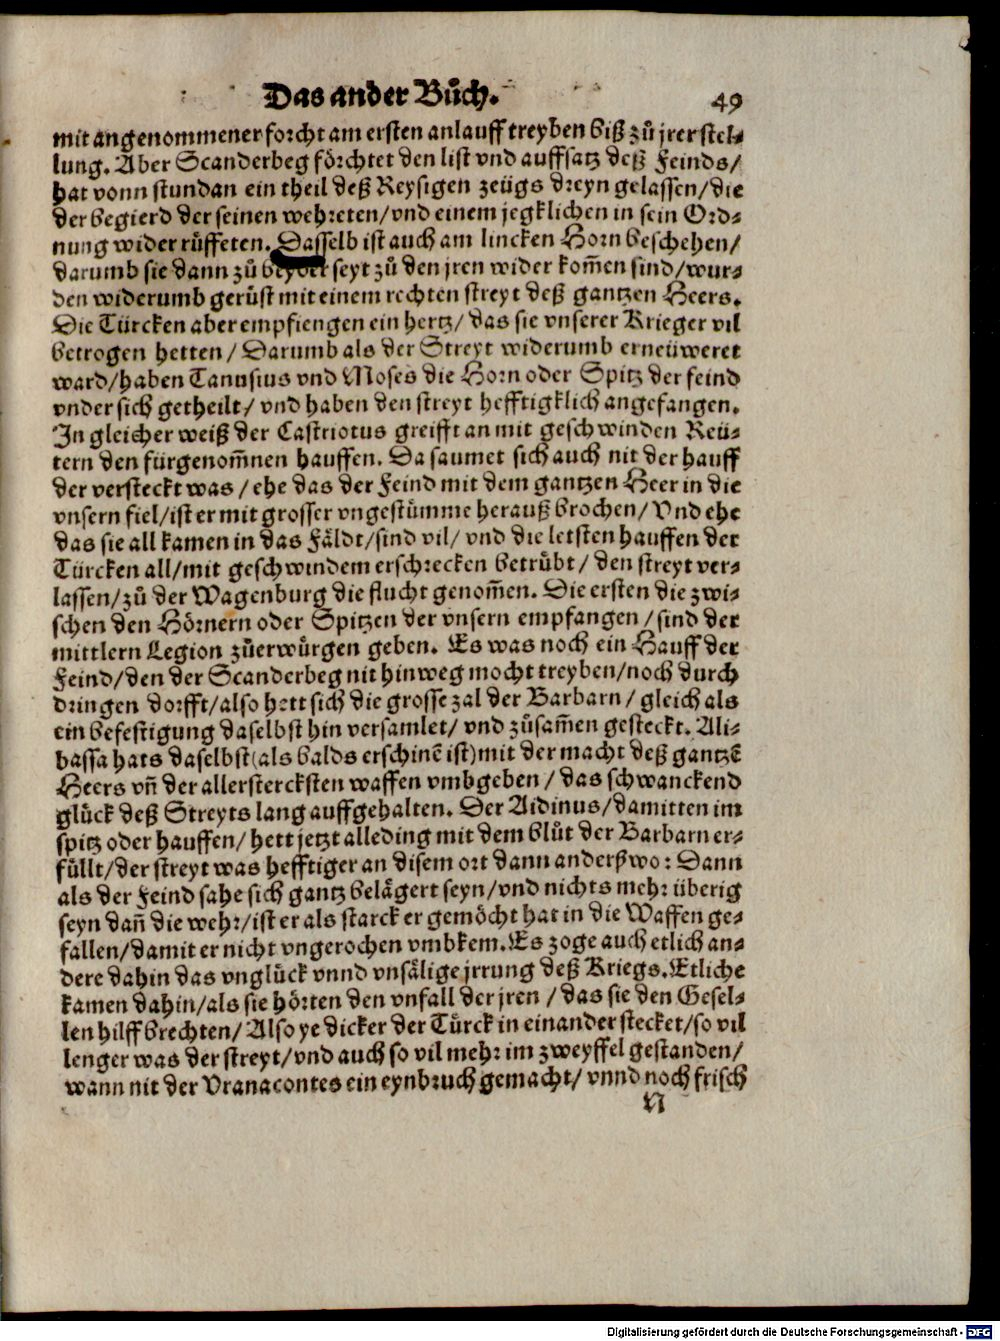 Das ander Bůch. 49
mit angenommener forcht am ersten anlauff treyben biß zů jrer stel-
lung. Aber Scanderbeg förchtet den list vnd auffsatz deß Feinds/
hat vonn stundan ein theil deß Reysigen zeügs dreyn gelassen/die
der begierd der seinen wehreten/vnd einem jegklichen in sein Ord-
nung wider rüffeten. Dasselb ist auch am lincken Horn beschehen/
darumb sie dann zů seyt zů den jren wider kom̃en sind/wur-
den widerumb gerüst mit einem rechten streyt deß gantzen Heers.
Die Türcken aber empfiengen ein hertz/das sie vnserer Krieger vil
betrogen hetten/Darumb als der Streyt widerumb erneüweret
ward/haben Tanusius vnd Moses die Horn oder Spitz der feind
vnder sich getheilt/vnd haben den streyt hefftigklich angefangen.
In gleicher weiß der Castriotus greifft an mit geschwinden Reü-
tern den fürgenom̃nen hauffen. Da saumet sich auch nit der hauff
der versteckt was/ehe das der Feind mit dem gantzen Heer in die
vnsern fiel/ist er mit grosser vngestümme herauß brochen/Vnd ehe
das sie all kamen in das Fäldt/sind vil/vnd die letsten hauffen der
Türcken all/mit geschwindem erschrecken betrübt/den streyt ver-
lassen/zů der Wagenburg die flucht genom̃en. Die ersten die zwi-
schen den Hörnern oder Spitzen der vnsern empfangen/sind der
mittlern Legion zůerwürgen geben. Es was noch ein Hauff der
Feind/den der Scanderbeg nit hinweg mocht treyben/noch durch
dringen dorfft/also hett sich die grosse zal der Barbarn/gleich als
ein befestigung daselbst hin versamlet/vnd zůsam̃en gesteckt. Ali-
bassa hats daselbst(als balds erschinẽ ist)mit der macht deß gantzẽ
Heers vñ der allerstercksten waffen vmbgeben/das schwanckend
glück deß Streyts lang auffgehalten. Der Aidinus/damitten im
spitz oder hauffen/hett jetzt alleding mit dem blůt der Barbarn er-
füllt/der streyt was hefftiger an disem ort dann anderßwo: Dann
als der Feind sahe sich gantz belägert seyn/vnd nichts mehr überig
seyn dañ die wehr/ist er als starck er gemöcht hat in die Waffen ge-
fallen/damit er nicht vngerochen vmbkem. Es zoge auch etlich an-
dere dahin das vnglück vnnd vnsälige jrrung deß Kriegs. Etliche
kamen dahin/als sie hörten den vnfall der jren/das sie den Gesel-
len hilff brechten/Also ye dicker der Türck in einander stecket/so vil
lenger was der streyt/vnd auch so vil mehr im zweyffel gestanden/
wann nit der Vranacontes ein eynbruch gemacht/vnnd noch frisch
N
Digitalisierung gefördert durch die Deutsche Forschungsgemeinschaft - DFG